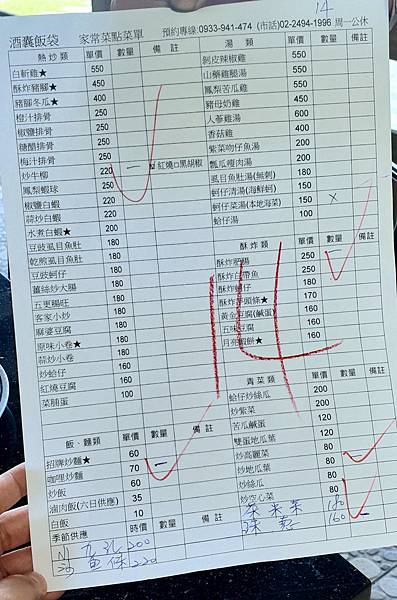 14
酒囊飯袋 家常菜點菜單 預約專線:0933-941-474 (市話)02-2494-1996 周一公休
熱炒類 單價 數量 備註
白斬雞★ 550
酥炸豬腳★ 450
豬腳冬瓜★ 400
橙汁排骨 250
椒鹽排骨 250
糖醋排骨 250
梅汁排骨 250
炒牛柳 220 紅燒□黑胡椒
鳳梨蝦球 220
椒鹽白蝦 220
蒜炒白蝦 220
水煮白蝦★ 200
豆豉虱目魚肚 180
乾煎虱目魚肚 180
豆豉蚵仔 180
薑絲炒大腸 180
五更腸旺 180
客家小炒 180
麻婆豆腐 180
原味小卷★ 180
蒜炒小卷 180
炒蛤仔 160
紅燒豆腐 100
菜脯蛋
飯、麵類 單價 數量 備註
招牌炒麵★ 60
咖哩炒麵 70
炒飯 60
滷肉飯(六日供應) 35
白飯 10
季節供應 時價 數量 備註
九孔 200
魚條 220
湯類 單價 數量 備註
剝皮辣椒雞 550
山藥雞腿湯 550
鳳梨苦瓜雞 550
豬母奶雞 450
人蔘雞湯 600
香菇雞 400
紫菜吻仔魚湯 200
瓢瓜瘦肉湯 200
虱目魚肚湯(無刺) 180
蚵仔清湯(海鮮蚵) 150
蚵仔菜湯(本地海菜) 150 x
蛤仔湯 100
酥炸類 單價 數量 備註
酥炸肥腸 250
酥炸白帶魚 250
酥炸蚵仔 180
酥炸芋頭條★ 170
黃金豆腐(鹹蛋) 160
五味豆腐 160
月亮蝦餅★ 160
青菜類 單價 數量 備註
蛤仔炒絲瓜 200
炒紫菜 200
苦瓜鹹蛋 120
雙蛋地瓜葉 120
炒高麗菜 80
炒地瓜葉 80
炒絲瓜 80
炒空心菜 80
180
160